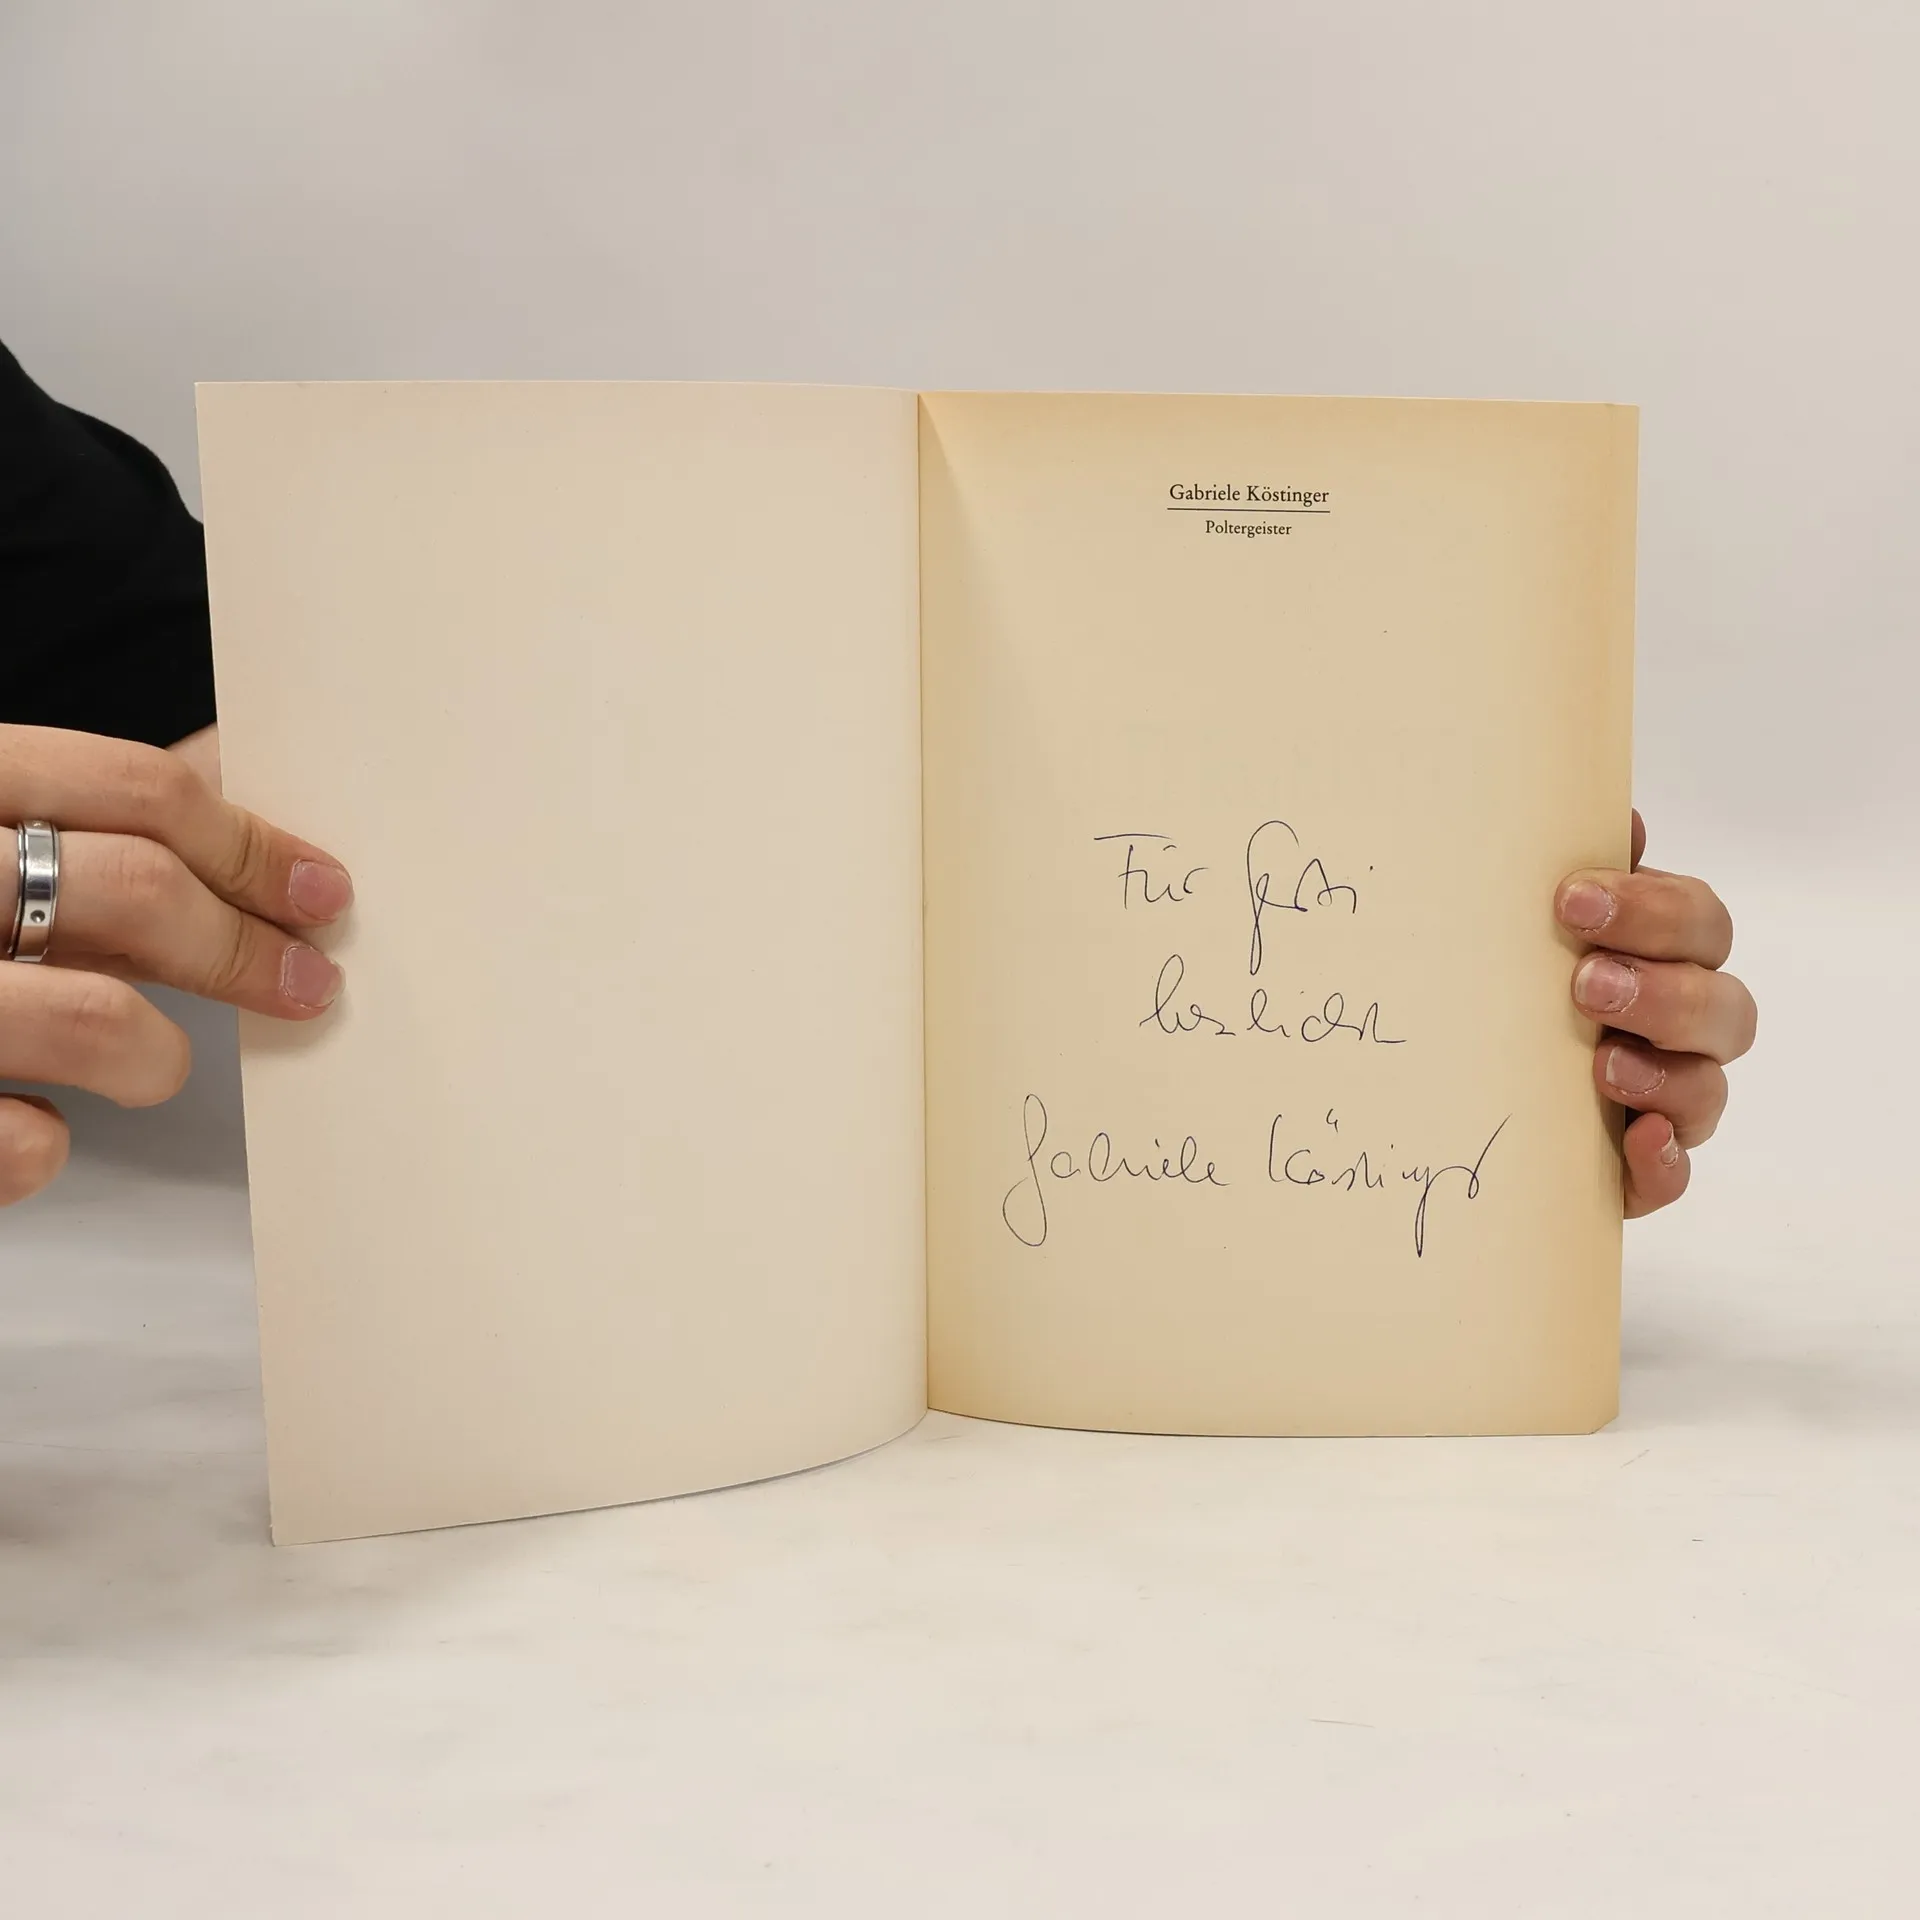 Gabriele Köstinger
Poltergeister
Für
herzlichst
Gabriele Köstinger